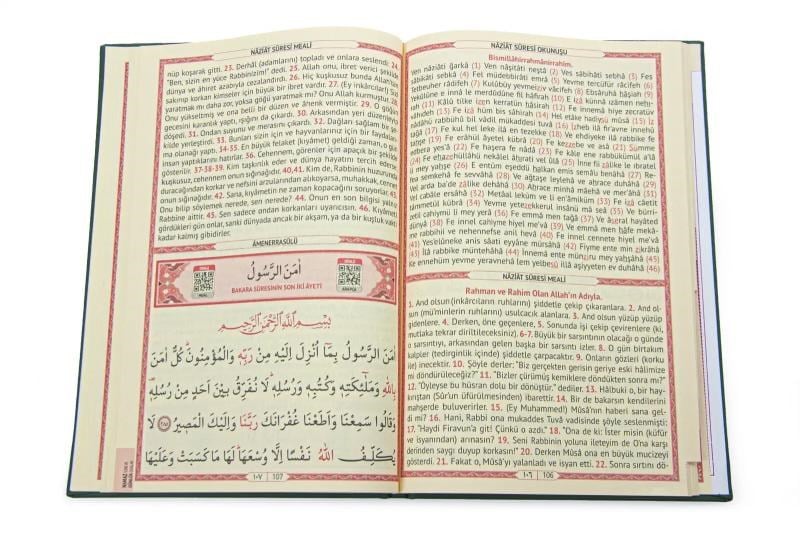 NÂZİÂT SÛRESİ OKUNUŞU
Bismillâhirrahmânirrahîm.
Ven nâziâti ğarkâ (1) Ven nâşitâti neştâ (2) Ves sâbihâti sebhâ (3) Fes
sâbikâti sebkâ (4) Fel müdebbirâti emrâ (5) Yevme tercüfür râcifeh (6)
Tetbeuher râdifeh (7) Kulûbüy yevmeiziv vâcifeh (8) Ebsâruhâ hâşiah (9)
Yekûlûne e innâ le merdûdûne fil hâfirah (10) E izâ künnâ izâmen nehı-
rah (11) Kâlû tilke izen kerratün hâsirah (12) Fe innemâ hiye zecratüv
vâhideh (13) Fe izâ hüm bis sâhirah (14) Hel etâke hadîysü mûsâ (15) İz
nâdâhü rabbühû bil vâdil mükaddesi tuvâ (16) İzheb ilâ fir'avne innehû
tağâ (17) Fe kul hel leke ilâ en tezekke (18) Ve ehdiyeke ilâ rabbike fe
tahşe (19) Fe erâhül âyetel kübrâ (20) Fe kezzebe ve asâ (21) Sümme
edbera yes'â (22) Fe haşera fe nâdâ (23) Fe kâle ene rabbükümül a'lâ
(24) Fe ehazehüllâhü nekâlel âhırati vel ûlâ (25) İnne fîi zâlike le ıbratel
limey yahşâ (26) E entüm eşeddü halkan emis semâü benâhâ (27) Ra-
fea semkehâ fe sevvâhâ (28) Ve ağtaşe leylehâ ve ahrace duhâhâ (29)
Vel arda ba'de zâlike dehâhâ (30) Ahrace minhâ mâehâ ve mer'âhâ (31)
Vel cibâle ersâhâ (32) Metâal leküm ve li en'âmiküm (33) Fe izâ câetit
tâmmetül kübrâ (34) Yevme yetezekkerul insânü mâ seâ (35) Ve bürri-
zetil cahıymü li mey yerâ (36) Fe emmâ men tağâ (37) Ve âseral hayâted
dünyâ (38) Fe innel cahıyme hiyel me'vâ (39) Ve emmâ men hâfe mekâ-
me rabbihî ve nehennefse anil hevâ (40) Fe innel cennete hiyel me'vâ
(41) Yes'elûneke anis sâati eyyâne mürsâhâ (42) Fîyme ente min zikrâhâ
(43) İlâ rabbike müntehâhâ (44) İnnemâ ente münziru mey yahşâhâ (45)
Ke ennehüm yevme yeravnehâ lem yelbesûü illâ aşiyyeten ev duhâhâ (46)
NÂZİÂT SÛRESİ MEÂLİ
Rahman ve Rahim Olan Allah'ın Adıyla.
1. And olsun (inkârcıların ruhlarını) şiddetle çekip çıkaranlara. 2. And ol-
sun (mü'minlerin ruhlarını) usulcacık alanlara. 3. And olsun yüzüp yüzüp
gidenlere. 4. Derken, öne geçenlere, 5. Sonunda işi çekip çevirenlere (ki,
mutlaka tekrar diriltileceksiniz). 6-7. Büyük bir sarsıntının olacağı o günde
o sarsıntıyı, arkasından gelen başka bir sarsıntı izler. 8. O gün birtakım
kalpler (tedirginlik içinde) şiddetle çarpacaktır. 9. Onların gözleri (korku
ile) inecektir. 10. Şöyle derler: "Biz gerçekten gerisin geriye eski hâlimize
mi döndürüleceğiz?" 11. "Bizler çürümüş kemiklere döndükten sonra mı?"
12. "Öyleyse bu hüsran dolu bir dönüştür" dediler. 13. Hâlbuki o, bir hay-
kırıştan (Sûr'un üfürülmesinden) ibarettir. 14. Bir de bakarsın kendilerini
mahşerde buluverirler. 15. (Ey Muhammed!) Mûsâ'nın haberi sana gel-
di mi? 16. Hani, Rabbi ona mukaddes Tuvâ vadisinde şöyle seslenmişti:
17. "Haydi Firavun'a git! Çünkü o azdı." 18. "Ona de ki: İster misin (küfür
ve isyanından) arınasın? 19. Seni Rabbinin yoluna ileteyim de O'na karşı
derinden saygı duyup korkasın!" 20. Derken Mûsâ ona en büyük mucizeyi
gösterdi. 21. Fakat o, Mûsâ'yı yalanladı ve isyan etti. 22. Sonra sırtını dö-
١٠٦ 106
NÂZİÂT SÛRESİ MEÂLİ
nüp koşarak gitti. 23. Derhâl (adamlarını) topladı ve onlara seslendi: 24.
"Ben, sizin en yüce Rabbinizim!" dedi. 25. Allah onu, ibret verici şekilde
dünya ve âhiret azabıyla cezalandırdı. 26. Hiç kuşkusuz bunda Allah'tan
sakınıp korkan kimseler için büyük bir ibret vardır. 27. (Ey inkârcılar!) Sizi
yaratmak mı daha zor, yoksa göğü yaratmak mı? Onu Allah kurmuştur. 28.
Onu yükseltmiş ve ona belli bir düzen ve âhenk vermiştir. 29. O göğün
gecesini karanlık yaptı, ışığını da çıkardı. 30. Arkasından yeri düzenleyip
döşedi. 31. Ondan suyunu ve merasını çıkardı. 32. Dağları sağlam bir şe-
kilde yerleştirdi. 33. Bunları sizin için ve hayvanlarınız için bir faydalan-
ma olanağı yaptı. 34-35. En büyük felaket (kıyamet) geldiği zaman, o gün
insan yaptıklarını hatırlar. 36. Cehennem, görenler için apaçık bir şekilde
gösterilir. 37-38-39. Kim taşkınlık eder ve dünya hayatını tercih ederse
kuşkusuz, cehennem onun sığınağıdır. 40,41. Kim de, Rabbinin huzurunda
duracağından korkar ve nefsini arzularından alıkoyarsa, muhakkak, cennet
onun sığınağıdır. 42. Sana, kıyâmetin ne zaman kopacağını soruyorlar. 43.
Onu bilip söylemek nerede, sen nerede? 44. Onun en son bilgisi yalnız
Rabbine aittir. 45. Sen sadece ondan korkanları uyarıcısın. 46. Kıyâmeti
gördükleri gün onlar, sanki dünyada ancak bir akşam, ya da bir kuşluk vakti
kadar kalmış gibidirler.
ÂMENERRASÛLÜ
DİNLE
MEAL
اٰمَنَ الرَّسُولُ
BAKARA SÛRESİNİN SON İKİ ÂYETİ
DİNLE
ARAPÇA
بِسْمِ اللّٰهِ الرَّحْمٰنِ الرَّحِيمِ
اٰمَنَ الرَّسُولُ بِمَٓا اُنْزِلَ اِلَيْهِ مِنْ رَبِّهٖ وَالْمُؤْمِنُونَۜ كُلٌّ اٰمَنَ
بِاللّٰهِ وَمَلٰٓئِكَتِهٖ وَكُتُبِهٖ وَرُسُلِهٖۜ لَا نُفَرِّقُ بَيْنَ اَحَدٍ مِنْ رُسُلِهٖ۠
وَقَالُوا سَمِعْنَا وَاَطَعْنَا غُفْرَانَكَ رَبَّنَا وَاِلَيْكَ الْمَصِيرُ ﴿٢٨٥﴾ لَا
يُكَلِّفُ اللّٰهُ نَفْسًا اِلَّا وُسْعَهَاۜ لَهَا مَا كَسَبَتْ وَعَلَيْهَا
NAMAZ
١٠٧ 107